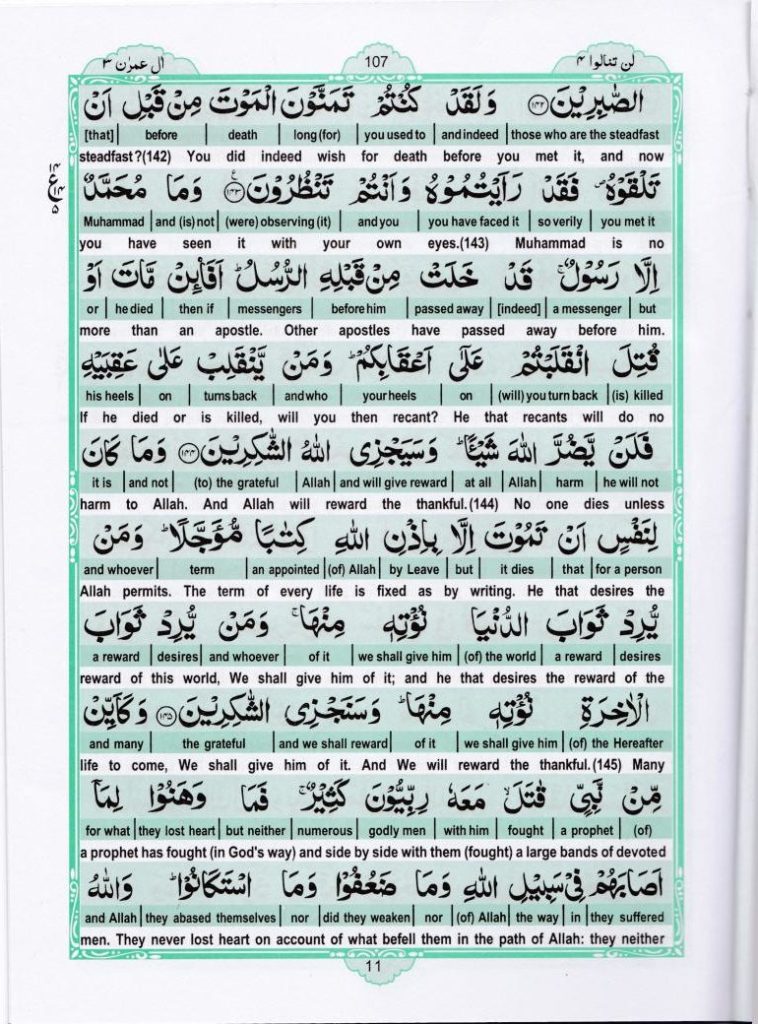 اٰل عمرٰن ٣
107
لن تنالوا ٤
الصّٰبِرِيْنَ ﴿١٤٢﴾ وَلَقَدْ كُنْتُمْ تَمَنَّوْنَ الْمَوْتَ مِنْ قَبْلِ اَنْ
[that] before death long (for) you used to and indeed those who are the steadfast
steadfast?(142) You did indeed wish for death before you met it, and now
تَلْقَوْهُ ۪ فَقَدْ رَاَيْتُمُوْهُ وَاَنْتُمْ تَنْظُرُوْنَ ﴿١٤٣﴾ وَمَا مُحَمَّدٌ
Muhammad and (is) not (were) observing (it) and you you have faced it so verily you met it
you have seen it with your own eyes.(143) Muhammad is no
اِلَّا رَسُوْلٌ ۚ قَدْ خَلَتْ مِنْ قَبْلِهِ الرُّسُلُ ؕ اَفَا۟ئِنْ مَّاتَ اَوْ
or he died then if messengers before him passed away [indeed] a messenger but
more than an apostle. Other apostles have passed away before him.
قُتِلَ انْقَلَبْتُمْ عَلٰٓى اَعْقَابِكُمْ ؕ وَمَنْ يَّنْقَلِبْ عَلٰى عَقِبَيْهِ
his heels on turns back and who your heels on (will) you turn back (is) killed
If he died or is killed, will you then recant? He that recants will do no
فَلَنْ يَّضُرَّ اللّٰهَ شَيْـًٔا ؕ وَسَيَجْزِى اللّٰهُ الشّٰكِرِيْنَ ﴿١٤٤﴾ وَمَا كَانَ
it is and not (to) the grateful Allah and will give reward at all Allah harm he will not
harm to Allah. And Allah will reward the thankful.(144) No one dies unless
لِنَفْسٍ اَنْ تَمُوْتَ اِلَّا بِاِذْنِ اللّٰهِ كِتٰبًا مُّؤَجَّلًا ؕ وَمَنْ
and whoever term an appointed (of) Allah by Leave but it dies that for a person
Allah permits. The term of every life is fixed as by writing. He that desires the
يُّرِدْ ثَوَابَ الدُّنْيَا نُؤْتِهٖ مِنْهَا ۚ وَمَنْ يُّرِدْ ثَوَابَ
a reward desires and whoever of it we shall give him (of) the world a reward desires
reward of this world, We shall give him of it; and he that desires the reward of the
الْاٰخِرَةِ نُؤْتِهٖ مِنْهَا ؕ وَسَنَجْزِى الشّٰكِرِيْنَ ﴿١٤٥﴾ وَكَاَيِّنْ
and many the grateful and we shall reward of it we shall give him (of) the Hereafter
life to come, We shall give him of it. And We will reward the thankful.(145) Many
مِّنْ نَّبِيٍّ قٰتَلَ ۙ مَعَهٗ رِبِّيُّوْنَ كَثِيْرٌ ۚ فَمَا وَهَنُوْا لِمَاۤ
for what they lost heart but neither numerous godly men with him fought a prophet (of)
a prophet has fought (in God's way) and side by side with them (fought) a large bands of devoted
اَصَابَهُمْ فِيْ سَبِيْلِ اللّٰهِ وَمَا ضَعُفُوْا وَمَا اسْتَكَانُوْا ؕ وَاللّٰهُ
and Allah they abased themselves nor did they weaken nor (of) Allah the way in they suffered
men. They never lost heart on account of what befell them in the path of Allah: they neither
11